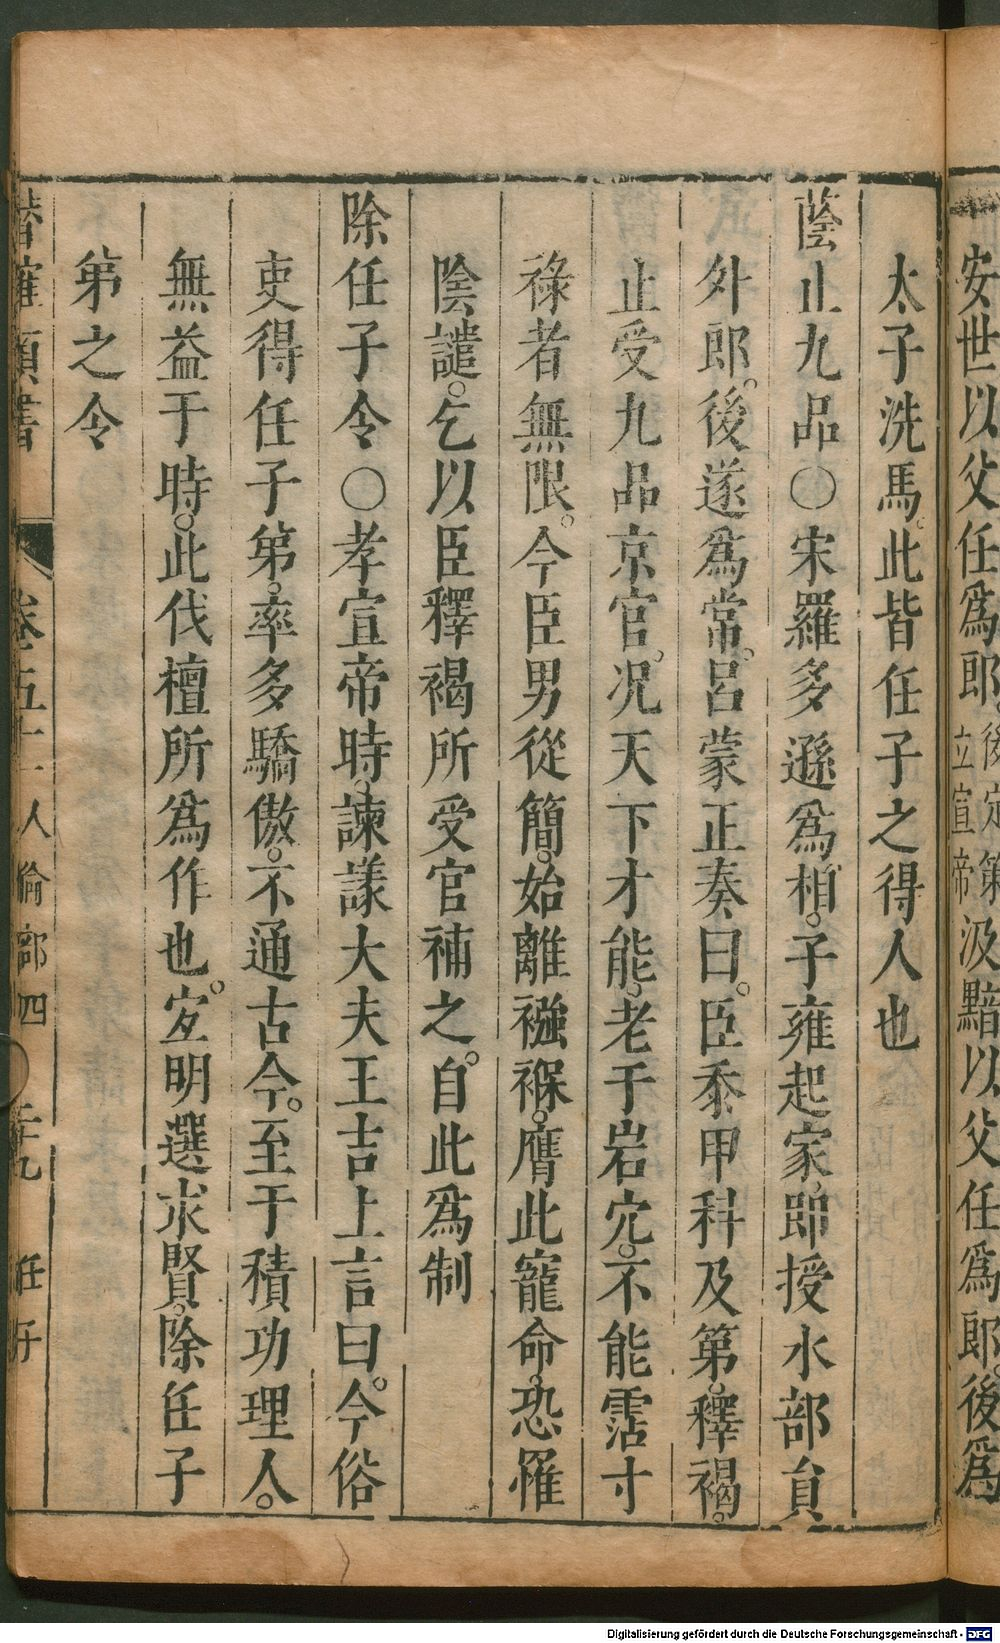 安世以父任爲郎。後定策立宣帝汲黯以父任爲郎。後爲
太子洗馬。此皆任子之得人也
蔭止九品〇宋羅多遜爲相。子雍起家。卽授水部員
外郎。後遂爲常。呂蒙正奏曰。臣忝甲科及第。釋褐。
止受九品京官。况天下才能。老于岩穴。不能霑寸
祿者無限。今臣男從簡。始離襁褓。膺此寵命。恐罹
陰譴。乞以臣釋褐所受官補之。自此爲制
除任子令〇孝宣帝時。諫議大夫王吉上言曰。今俗
吏得任子第。率多驕傲。不通古今。至于積功理人。
無益于時。此伐檀所爲作也。宜明選求賢。除任子
第之令
卷五十一 人倫部四 任子
Digitalisierung gefördert durch die Deutsche Forschungsgemeinschaft - DFG